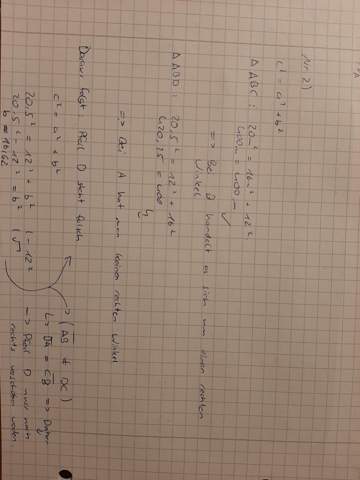 Nr. 2)
c² = a² + b²
△ ABC : 20m² = 16m² + 12²
400m = 400m ✓
=> Bei B handelt es sich um einen rechten
Winkel
△ ABD : 20,5² = 12² + 16²
420,25 = 400
=> Bei A hat man keinen rechten Winkel
Daraus folgt Pfeil D steht falsch
c² = a² + b²
20,5² = 12² + b² | - 12²
20,5² - 12² = b² | √
b = 16,62
(AB ∦ DC)
=> DA = CB =>
=> Pfeil D muss nach
rechts verschoben werden